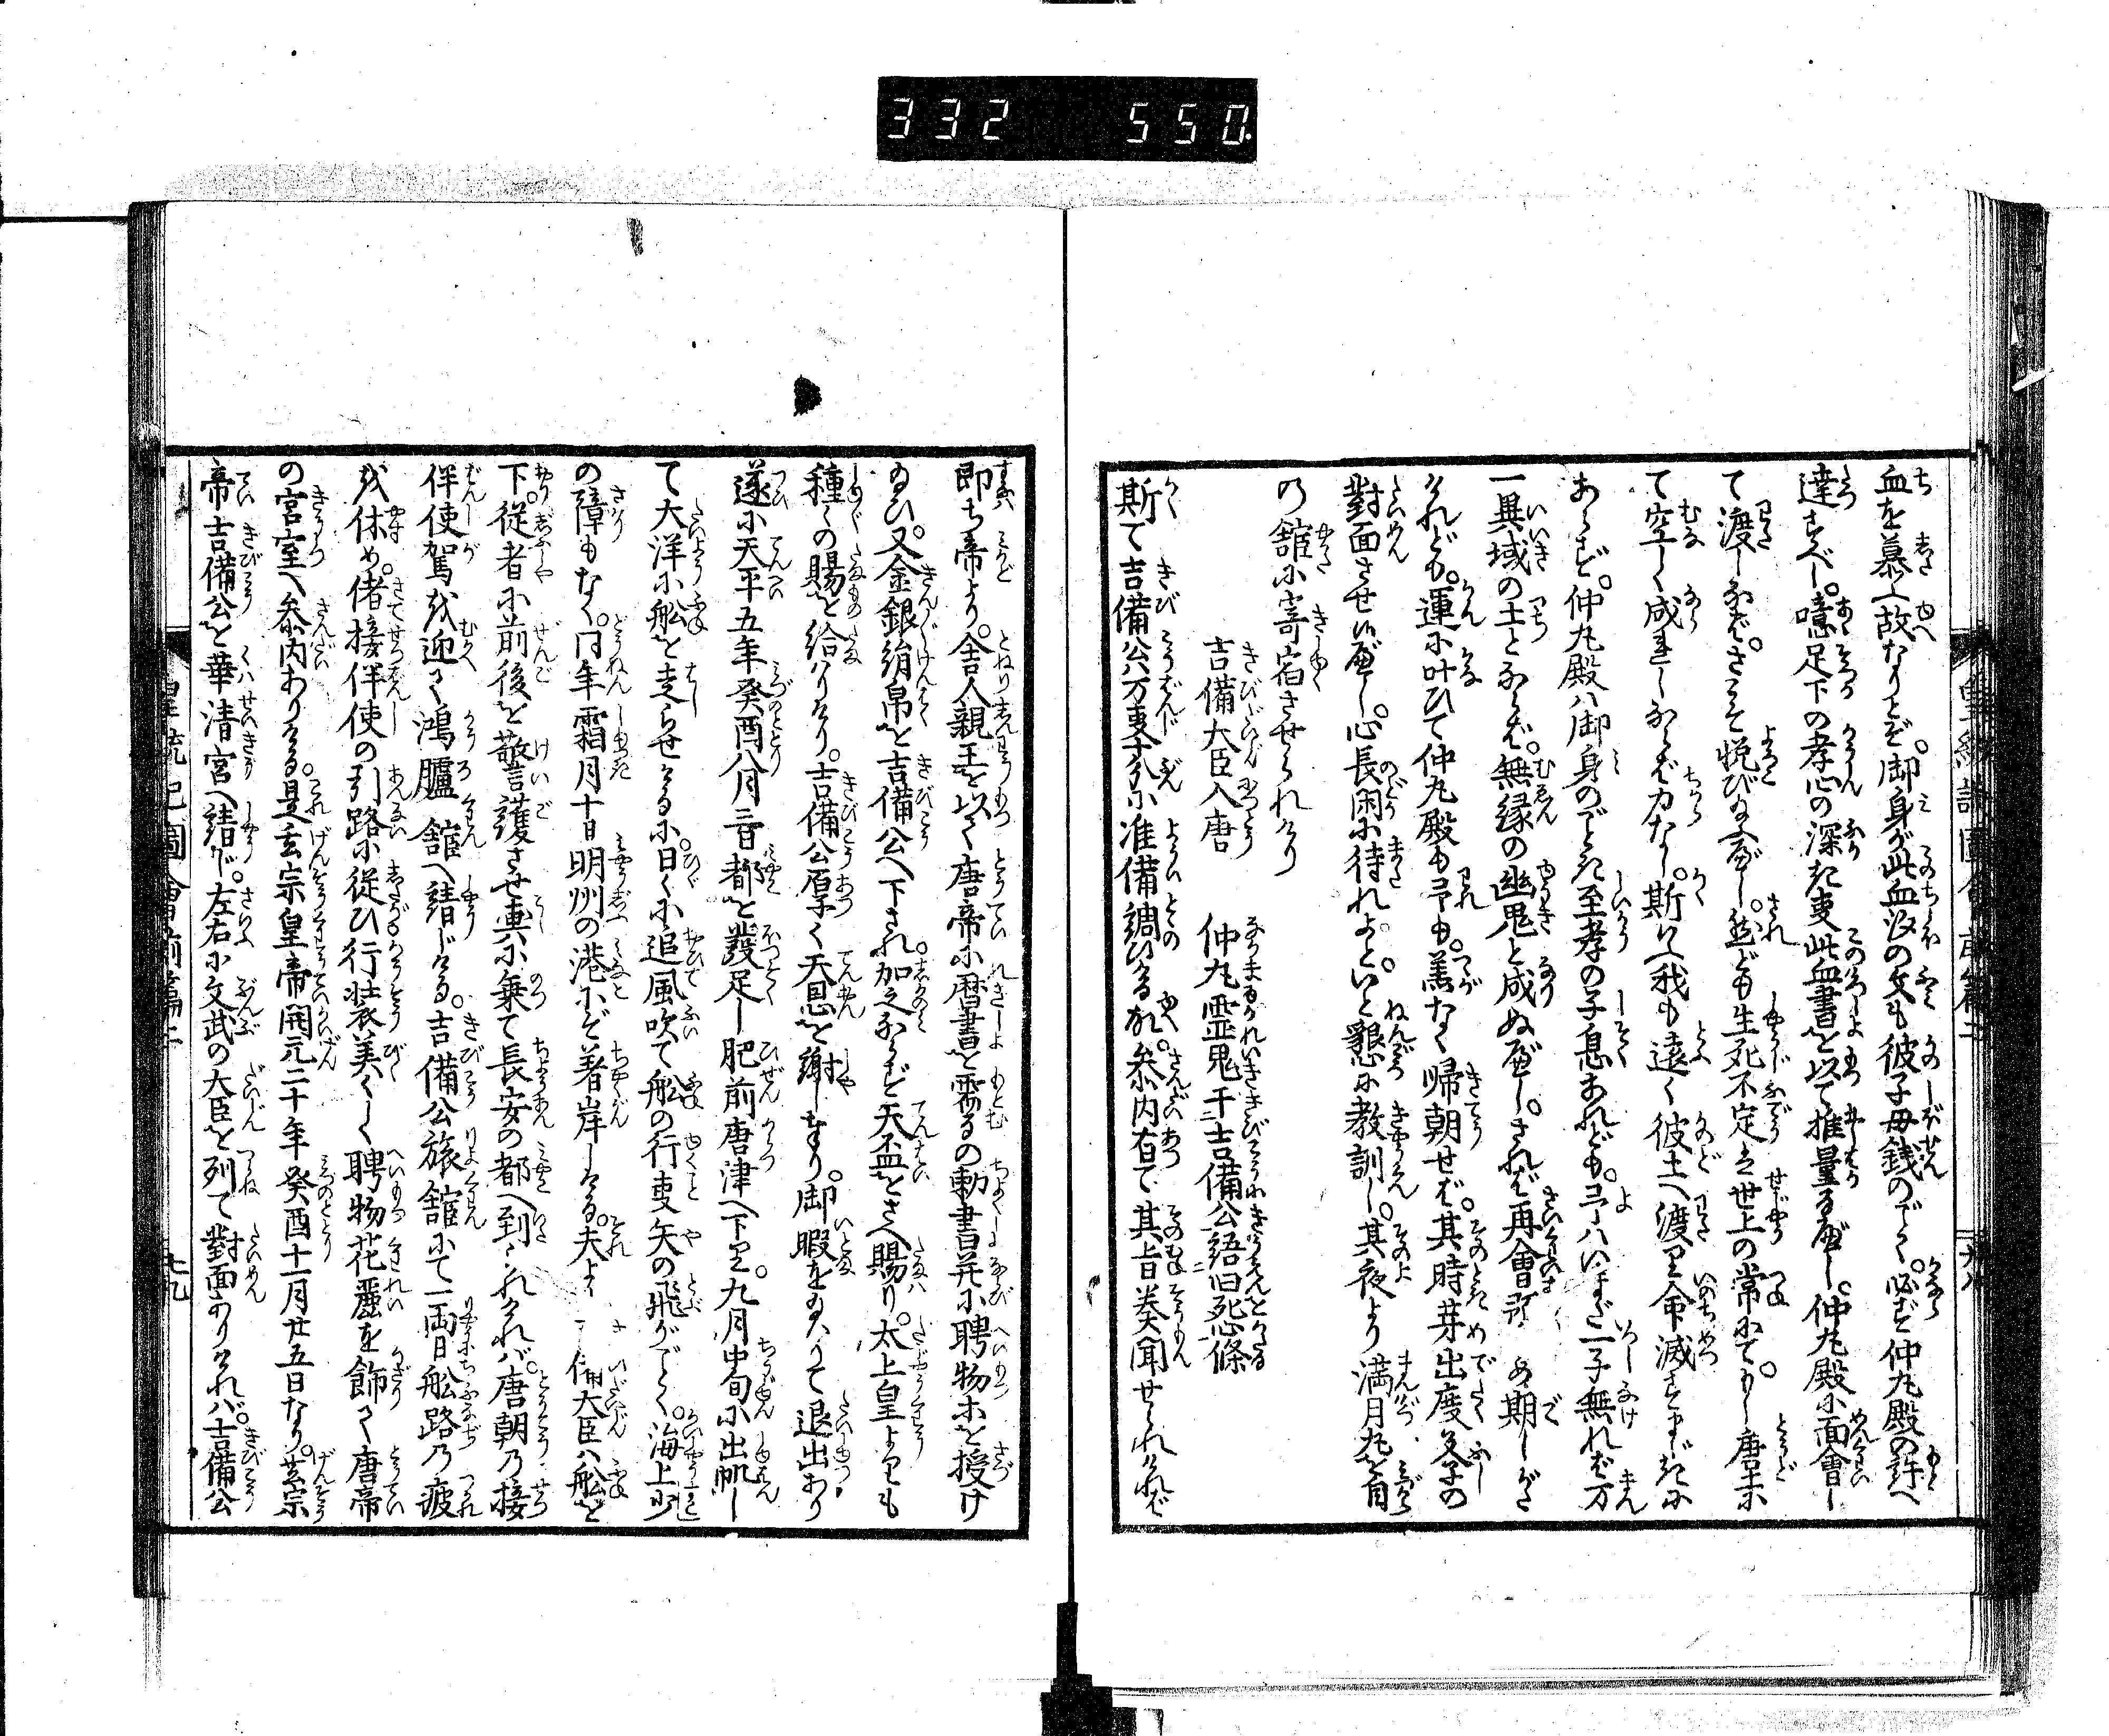 332 550.
血を慕ふ故なりとぞ。御身が此血汐の文も彼子母銭のごとく。必ず仲丸殿の許へ
達すべし。噫足下の孝心の深き事此血書を以て推量るべし。仲丸殿に面會し
て渡しなば。さこそ悦び給ふべし。然ども生死不定は世上の常にて。もし唐土に
て空しく成ましなば力なし。斯いふ我も遠く彼土へ渡り命滅すまじきに
あらず。仲丸殿ハ御身のごとき至孝の子息あれども。予ハいまだ一子無れば万
一異域の土とならば。無縁の幽鬼と成ぬべし。されば再會
期しがた
けれども。運に叶ひて仲丸殿も予も。恙なく帰朝せば。其時芽出度父子の
對面させ申べし。心長閑に待れよと。いと懇に教訓し。其夜より満月丸を自
の舘に寄宿させられけり
吉備大臣入唐
仲丸霊鬼干吉備公語旧死惣條
斯て吉備公ハ万事十分に准備調ひける故。参内有て其旨奏聞せられければ
即ち帝より。舎人親王を以て唐帝に暦書を需るの勅書并に聘物等を授け
給ひ。又金銀絹帛を吉備公へ下され。加之ならず天盃をさへ賜り。太上皇よりも
種々の賜を給はりけり。吉備公厚く天恩を謝し奉り。御暇を給ハりて退出あり
遂に天平五年癸酉八月三日都を發足し肥前唐津へ下り。九月中旬に出帆し
て大洋に舩を走らせけるに。日々に追風吹て舩の行事矢の飛がごとく。海上少
の障もなく。同年霜月十日明州の港にぞ着岸しける。夫より
備大臣ハ舩を
下。従者に前後を警護させ輿に乗て長安の都へ到られければ。唐朝乃接
伴使駕を迎て鴻臚舘へ請じける。吉備公旅舘にて一両日舩路乃疲
を休め。偖接伴使の引路に従ひ行装美々しく聘物花麗を飾て唐帝
の宮室へ参内ありける。是玄宗皇帝開元二十年癸酉十一月廿五日なり。玄宗
帝吉備公を華清宮へ請じ。左右に文武の大臣を列て對面ありければ。吉備公